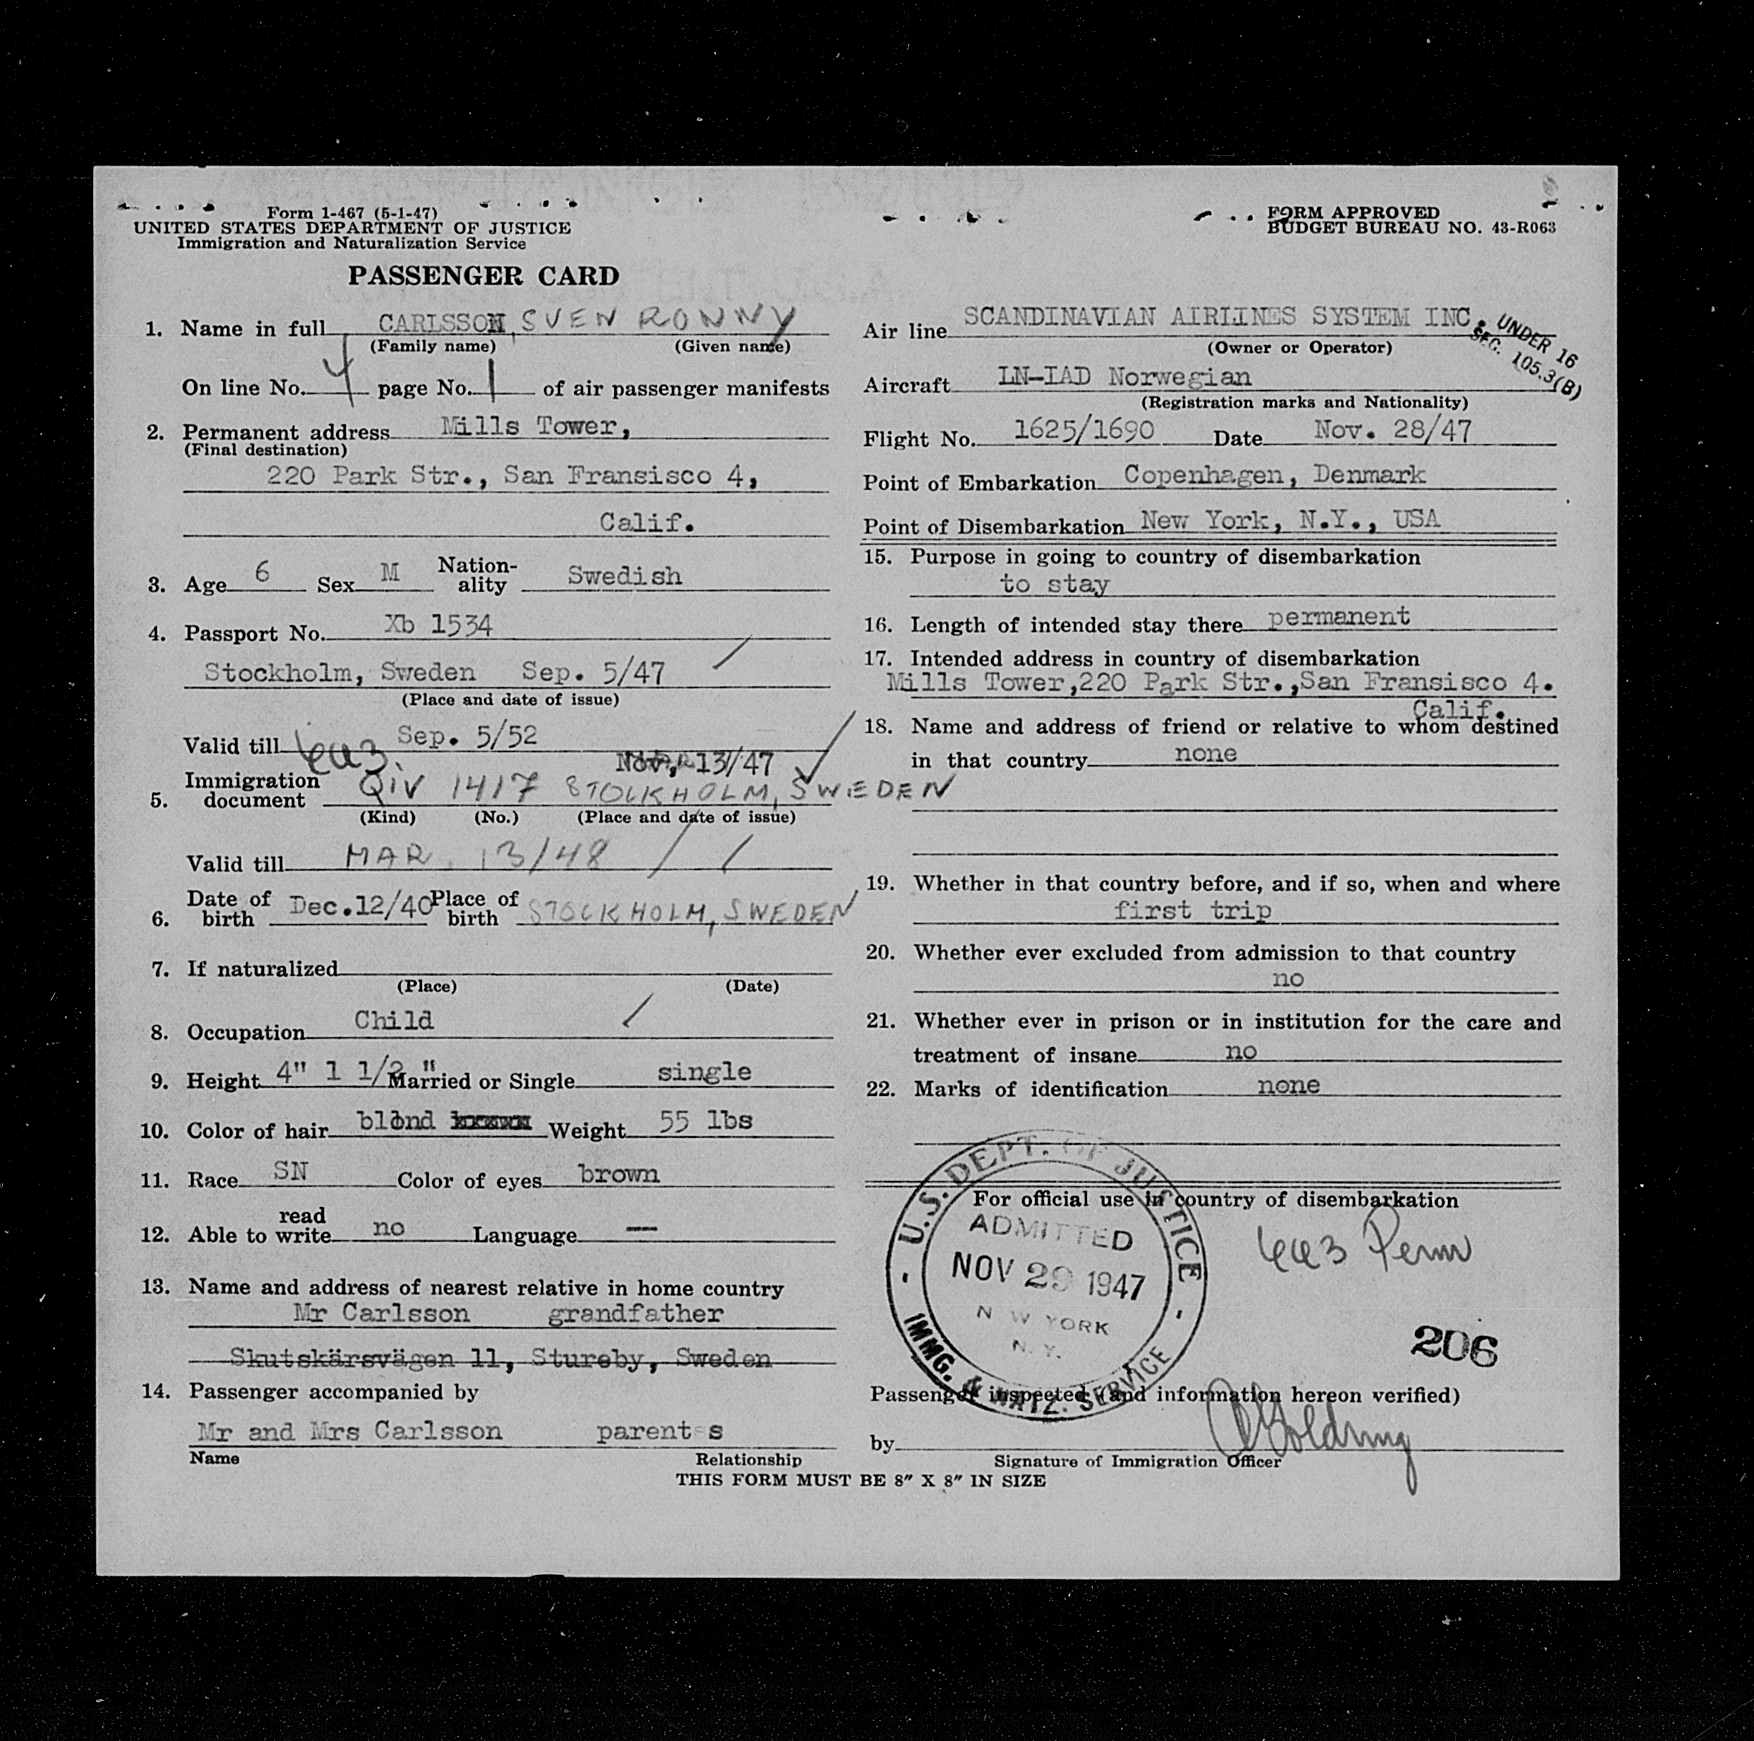 Form I-467 (5-1-47)
UNITED STATES DEPARTMENT OF JUSTICE
Immigration and Naturalization Service
FORM APPROVED
BUDGET BUREAU NO. 43-R063
PASSENGER CARD
1. Name in full CARLSSON, SVEN RONNY
(Family name) (Given name)
On line No. 4 page No. 1 of air passenger manifests
2. Permanent address Mills Tower,
(Final destination)
220 Park Str., San Fransisco 4,
Calif.
3. Age 6 Sex M Nation-ality Swedish
4. Passport No. Xb 1534
Stockholm, Sweden Sep. 5/47
(Place and date of issue)
Valid till Sep. 5/52
Nov, 13/47
5. Immigration document QIV 1417 STOCKHOLM, SWEDEN
(Kind) (No.) (Place and date of issue)
Valid till MAR. 13/48
6. Date of birth Dec.12/40 Place of birth STOCKHOLM, SWEDEN
7. If naturalized
(Place) (Date)
8. Occupation Child
9. Height 4" 1 1/2 " Married or Single single
10. Color of hair blond Weight 55 lbs
11. Race SN Color of eyes brown
12. Able to read write no Language —
13. Name and address of nearest relative in home country
Mr Carlsson grandfather
Skutskärsvägen 11, Stureby, Sweden
14. Passenger accompanied by
Mr and Mrs Carlsson parents
Name Relationship
Air line SCANDINAVIAN AIRLINES SYSTEM INC.
(Owner or Operator)
UNDER 16
SEC. 105.3(B)
Aircraft LN-IAD Norwegian
(Registration marks and Nationality)
Flight No. 1625/1690 Date Nov. 28/47
Point of Embarkation Copenhagen, Denmark
Point of Disembarkation New York, N.Y., USA
15. Purpose in going to country of disembarkation
to stay
16. Length of intended stay there permanent
17. Intended address in country of disembarkation
Mills Tower,220 Park Str.,San Fransisco 4.
Calif.
18. Name and address of friend or relative to whom destined
in that country none
19. Whether in that country before, and if so, when and where
first trip
20. Whether ever excluded from admission to that country
no
21. Whether ever in prison or in institution for the care and
treatment of insane no
22. Marks of identification none
For official use in country of disembarkation
U.S. DEPT. OF JUSTICE
ADMITTED
NOV 29 1947
NEW YORK
N. Y.
IMMG. & NATZ. SERVICE
Perm
206
Passenger inspected (and information hereon verified)
by Goldring
Signature of Immigration Officer
THIS FORM MUST BE 8" X 8" IN SIZE